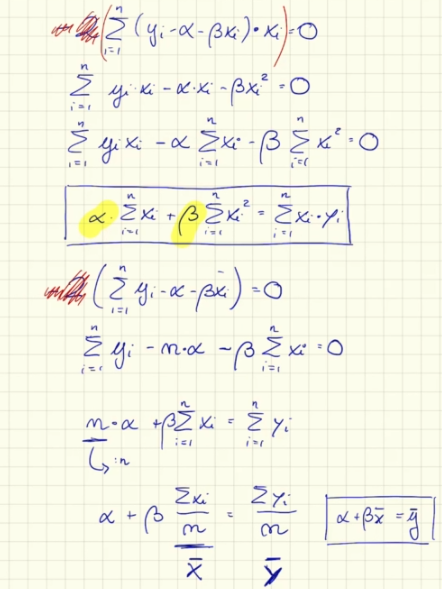 (∑_{i=1}^{n} (yᵢ - α - βxᵢ)·xᵢ) = 0
∑_{i=1}^{n} yᵢ·xᵢ - α·xᵢ - βxᵢ² = 0
∑_{i=1}^{n} yᵢxᵢ - α ∑_{i=1}^{n} xᵢ - β ∑_{i=1}^{n} xᵢ² = 0
α·∑_{i=1}^{n} xᵢ + β ∑_{i=1}^{n} xᵢ² = ∑_{i=1}^{n} xᵢ·yᵢ
(∑_{i=1}^{n} yᵢ - α - βxᵢ) = 0
∑_{i=1}^{n} yᵢ - n·α - β ∑_{i=1}^{n} xᵢ = 0
n·α + β ∑_{i=1}^{n} xᵢ = ∑_{i=1}^{n} yᵢ
:n
α + β ∑xᵢ/n = ∑yᵢ/n
α + βx̄ = ȳ
x̄ ȳ